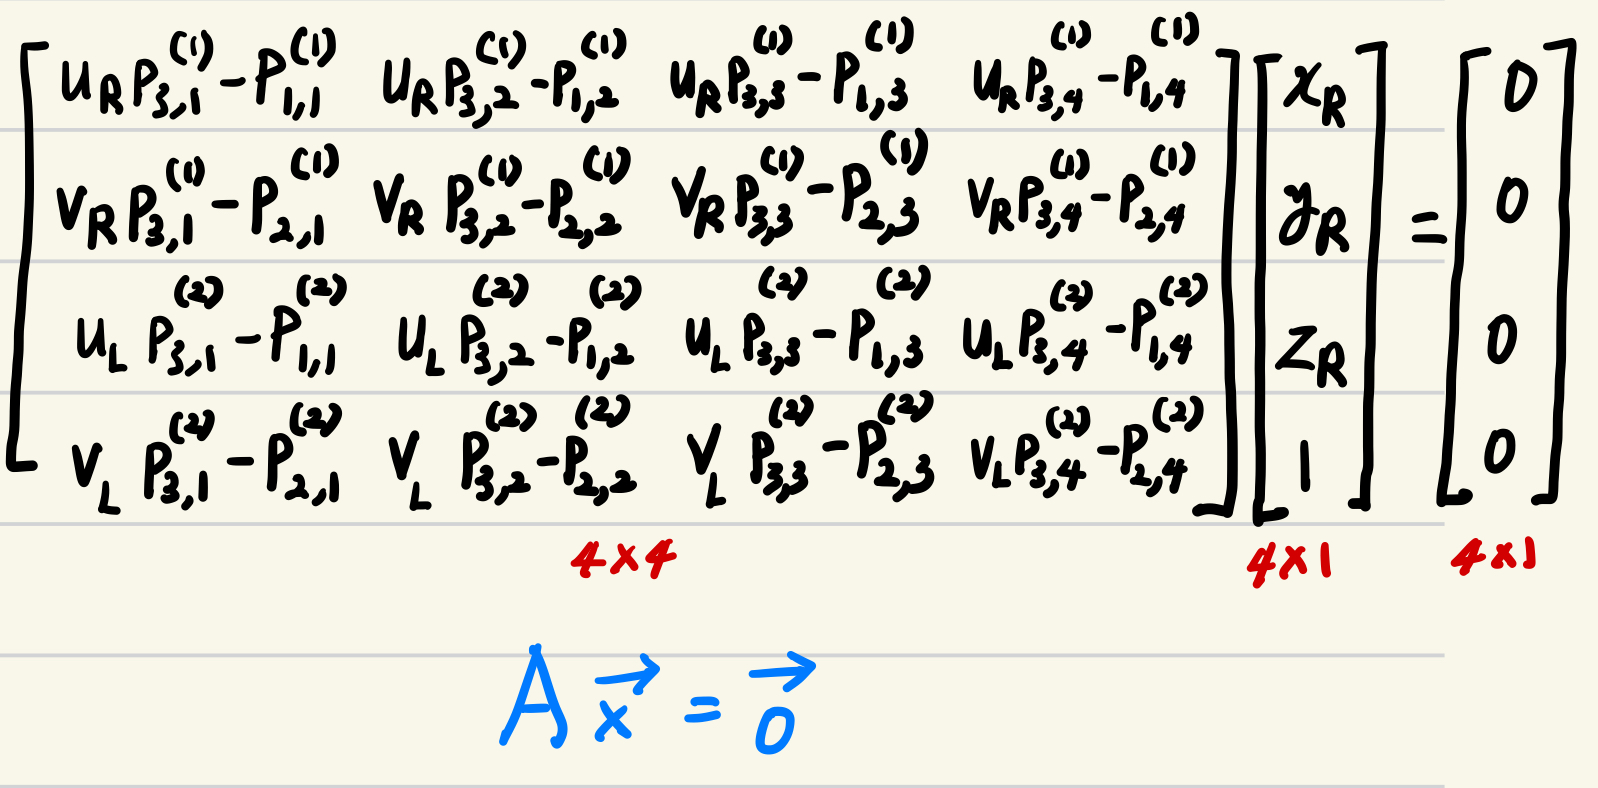 [ u_R P_{3,1}^{(1)} - P_{1,1}^{(1)}   u_R P_{3,2}^{(1)} - P_{1,2}^{(1)}   u_R P_{3,3}^{(1)} - P_{1,3}^{(1)}   u_R P_{3,4}^{(1)} - P_{1,4}^{(1)} ] [ x_R ]   [ 0 ]
[ v_R P_{3,1}^{(1)} - P_{2,1}^{(1)}   v_R P_{3,2}^{(1)} - P_{2,2}^{(1)}   v_R P_{3,3}^{(1)} - P_{2,3}^{(1)}   v_R P_{3,4}^{(1)} - P_{2,4}^{(1)} ] [ y_R ] = [ 0 ]
[ u_L P_{3,1}^{(2)} - P_{1,1}^{(2)}   u_L P_{3,2}^{(2)} - P_{1,2}^{(2)}   u_L P_{3,3}^{(2)} - P_{1,3}^{(2)}   u_L P_{3,4}^{(2)} - P_{1,4}^{(2)} ] [ z_R ]   [ 0 ]
[ v_L P_{3,1}^{(2)} - P_{2,1}^{(2)}   v_L P_{3,2}^{(2)} - P_{2,2}^{(2)}   v_L P_{3,3}^{(2)} - P_{2,3}^{(2)}   v_L P_{3,4}^{(2)} - P_{2,4}^{(2)} ] [ 1 ]   [ 0 ]
4×4   4×1   4×1
A \vec{x} = \vec{0}